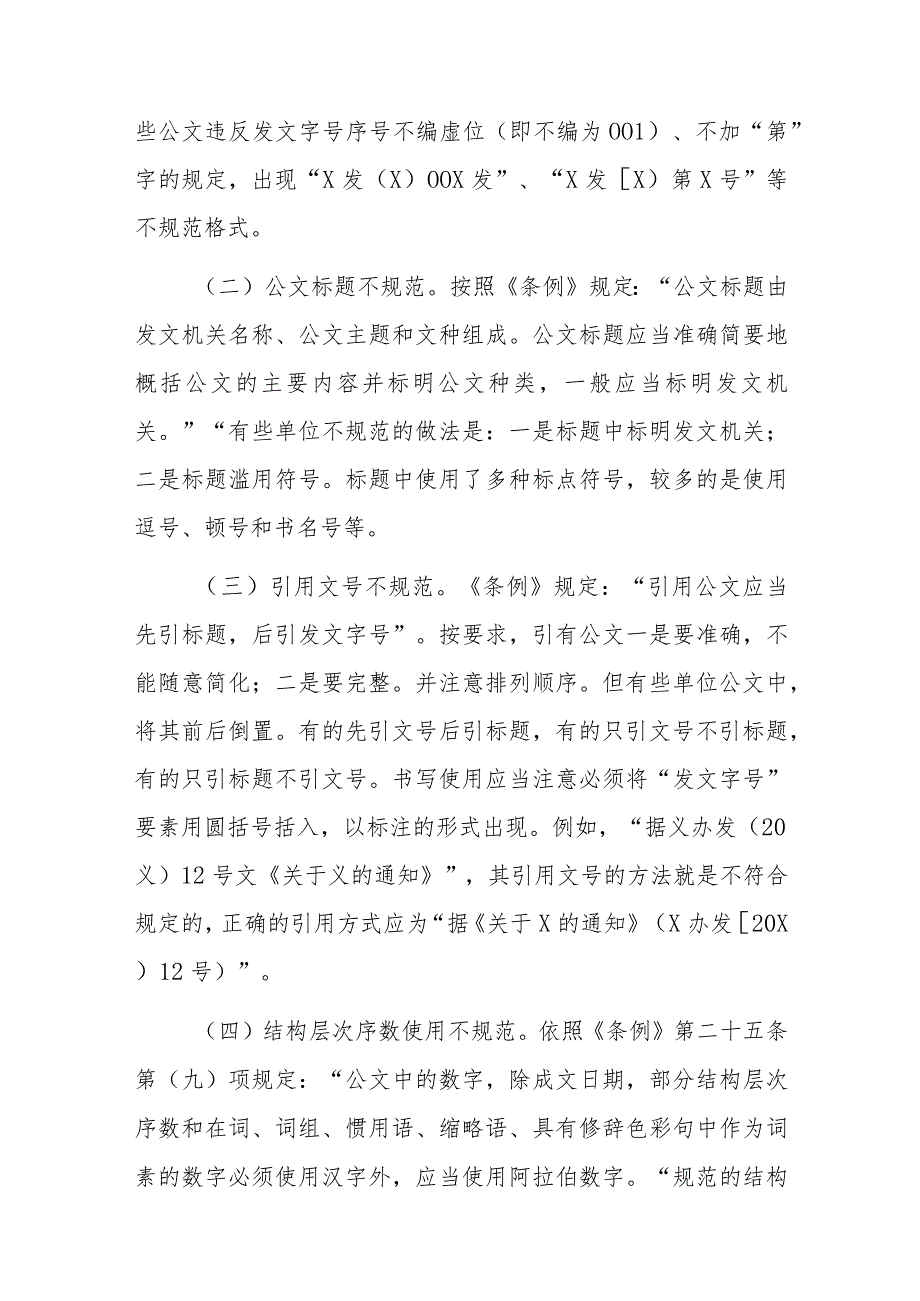 些公文违反发文字号序号不编虚位（即不编为OO1）、不加“第”
字的规定，出现“X发（X）OOX发”、“X发［X）第X号”等
不规范格式。
（二）公文标题不规范。按照《条例》规定：“公文标题由
发文机关名称、公文主题和文种组成。公文标题应当准确简要地
概括公文的主要内容并标明公文种类，一般应当标明发文机
关。”“有些单位不规范的做法是：一是标题中标明发文机关；
二是标题滥用符号。标题中使用了多种标点符号，较多的是使用
逗号、顿号和书名号等。
（三）引用文号不规范。《条例》规定：“引用公文应当
先引标题，后引发文字号”。按要求，引有公文一是要准确，不
能随意简化；二是要完整。并注意排列顺序。但有些单位公文中，
将其前后倒置。有的先引文号后引标题，有的只引文号不引标题，
有的只引标题不引文号。书写使用应当注意必须将“发文字号”
要素用圆括号括入，以标注的形式出现。例如，“据义办发（20
义）12号文《关于义的通知》”，其引用文号的方法就是不符合
规定的，正确的引用方式应为“据《关于X的通知》（X办发［20X
）12号）”。
（四）结构层次序数使用不规范。依照《条例》第二十五条
第（九）项规定：“公文中的数字，除成文日期，部分结构层次
序数和在词、词组、惯用语、缩略语、具有修辞色彩句中作为词
素的数字必须使用汉字外，应当使用阿拉伯数字。“规范的结构